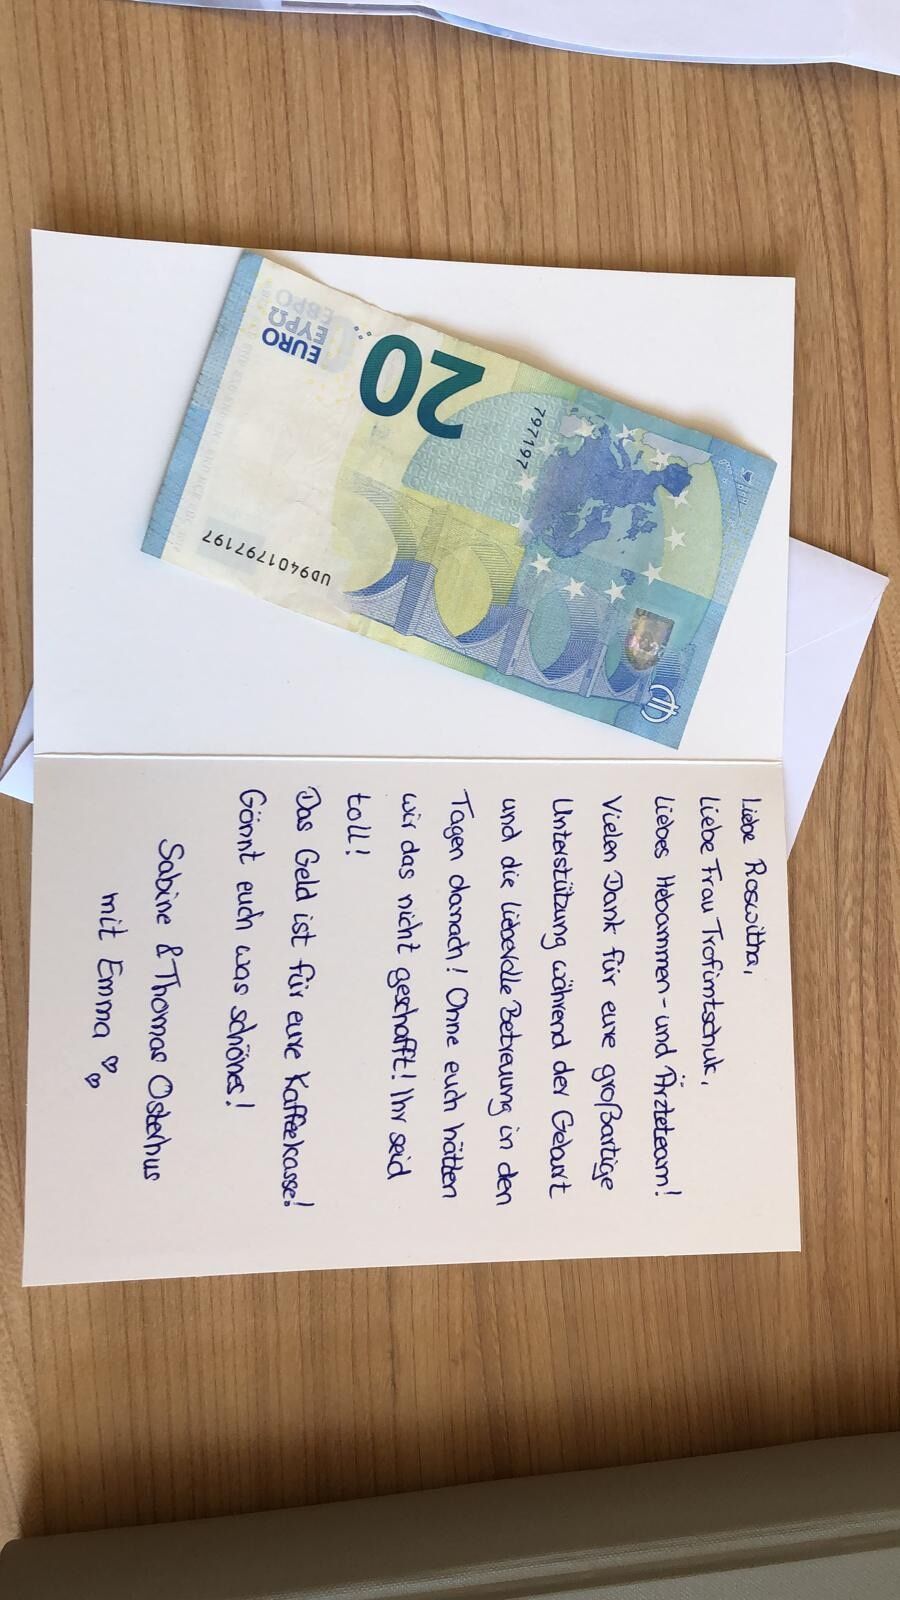 EURO
ΕΥΡΩ
ЕВРО
20
797197
UD9401797197
€
Liebe Roswitha,
Liebe Frau Trofimtschuk,
liebes Hebammen- und Ärzteteam!
Vielen Dank für eure großartige
Unterstützung während der Geburt
und die liebevolle Betreuung in den
Tagen danach! Ohne euch hätten
wir das nicht geschafft! Ihr seid
toll!
Das Geld ist für eure Kaffeekasse!
Gönnt euch was schönes!
Sabine & Thomas Osterhus
mit Emma ♡♡